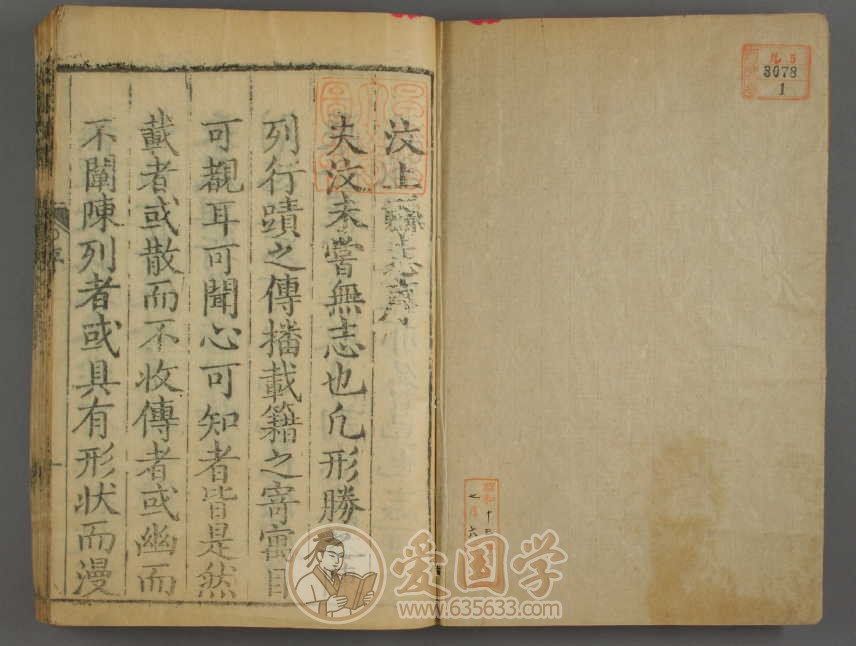 凡5
3078
1
汶上縣志序
夫汶未嘗無志也凢形勝之
列行蹟之傳播載籍之寄寓目
可觀耳可聞心可知者皆是然
載者或散而不收傳者或幽而
不闡陳列者或具有形状而漫
昭和
爱国学
www.635633.com